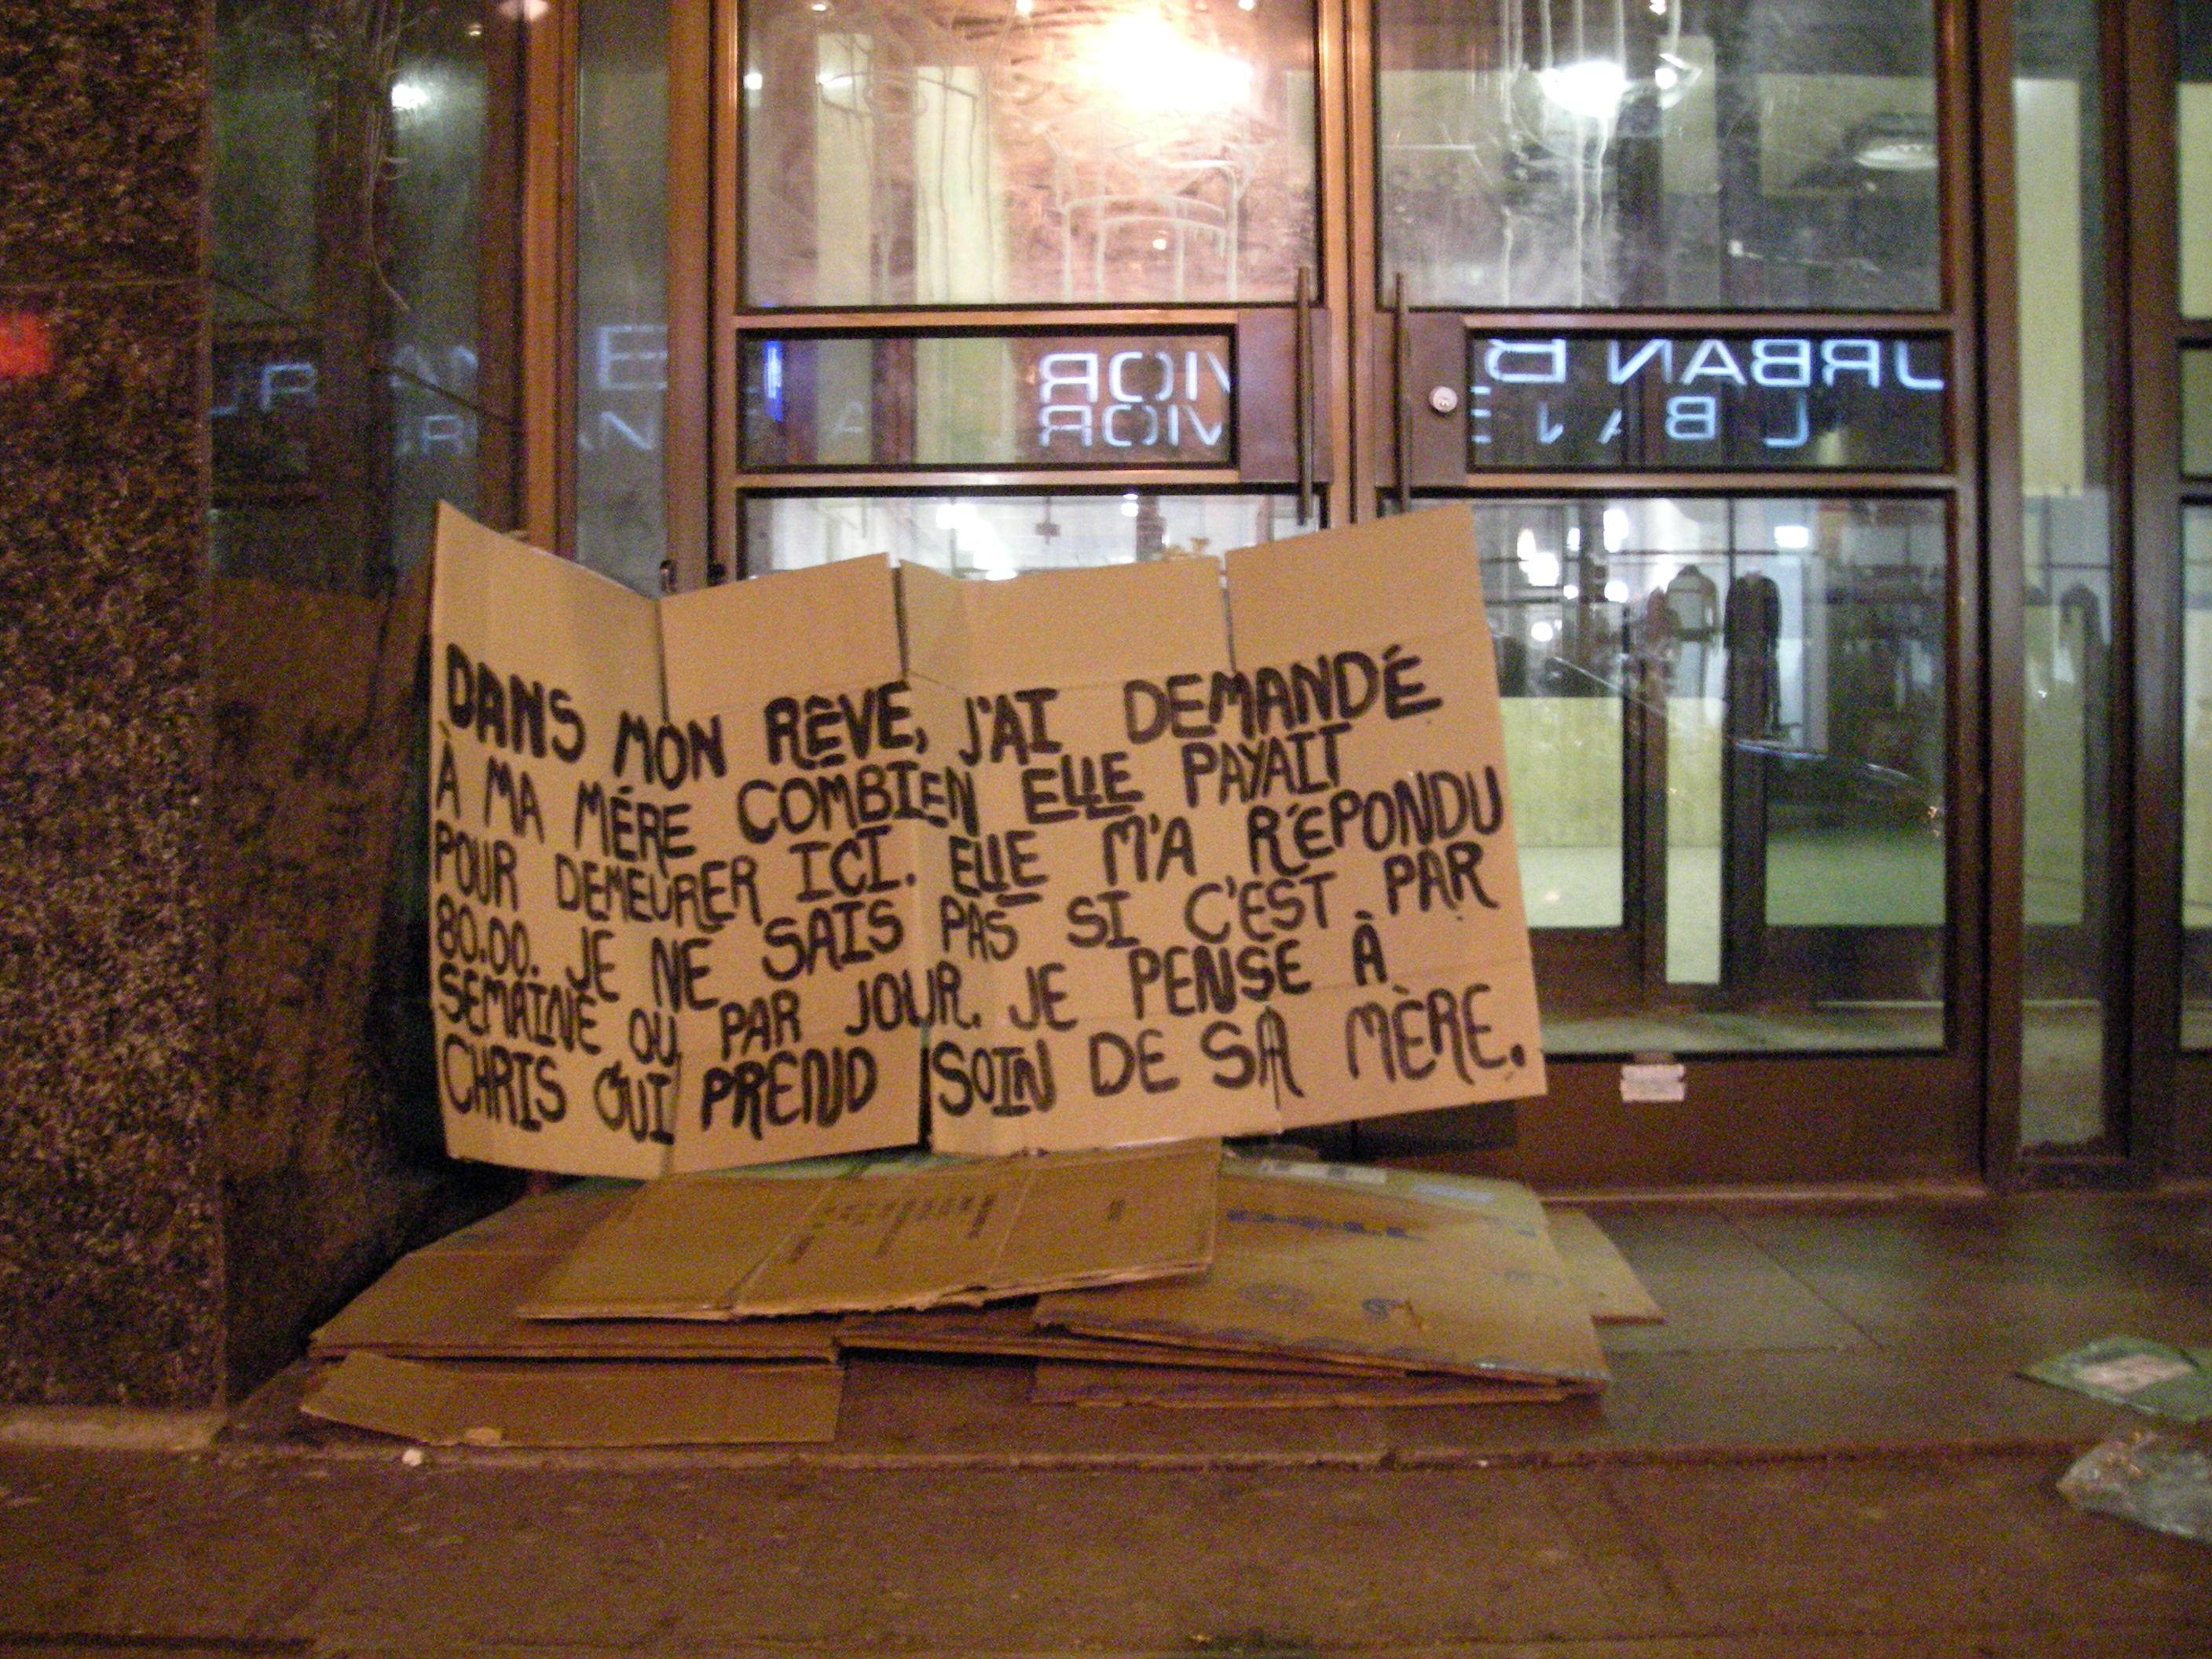 URBAN B
VIOR
VIOR
DANS MON RÊVE, J'AI DEMANDÉ
À MA MÉRE COMBIEN ELLE PAYAIT
POUR DEMEURER ICI. ELLE M'A RÉPONDU
80.00. JE NE SAIS PAS SI C'EST PAR
SEMAINE OU PAR JOUR. JE PENSE À
CHRIS QUI PREND SOIN DE SA MÈRE.